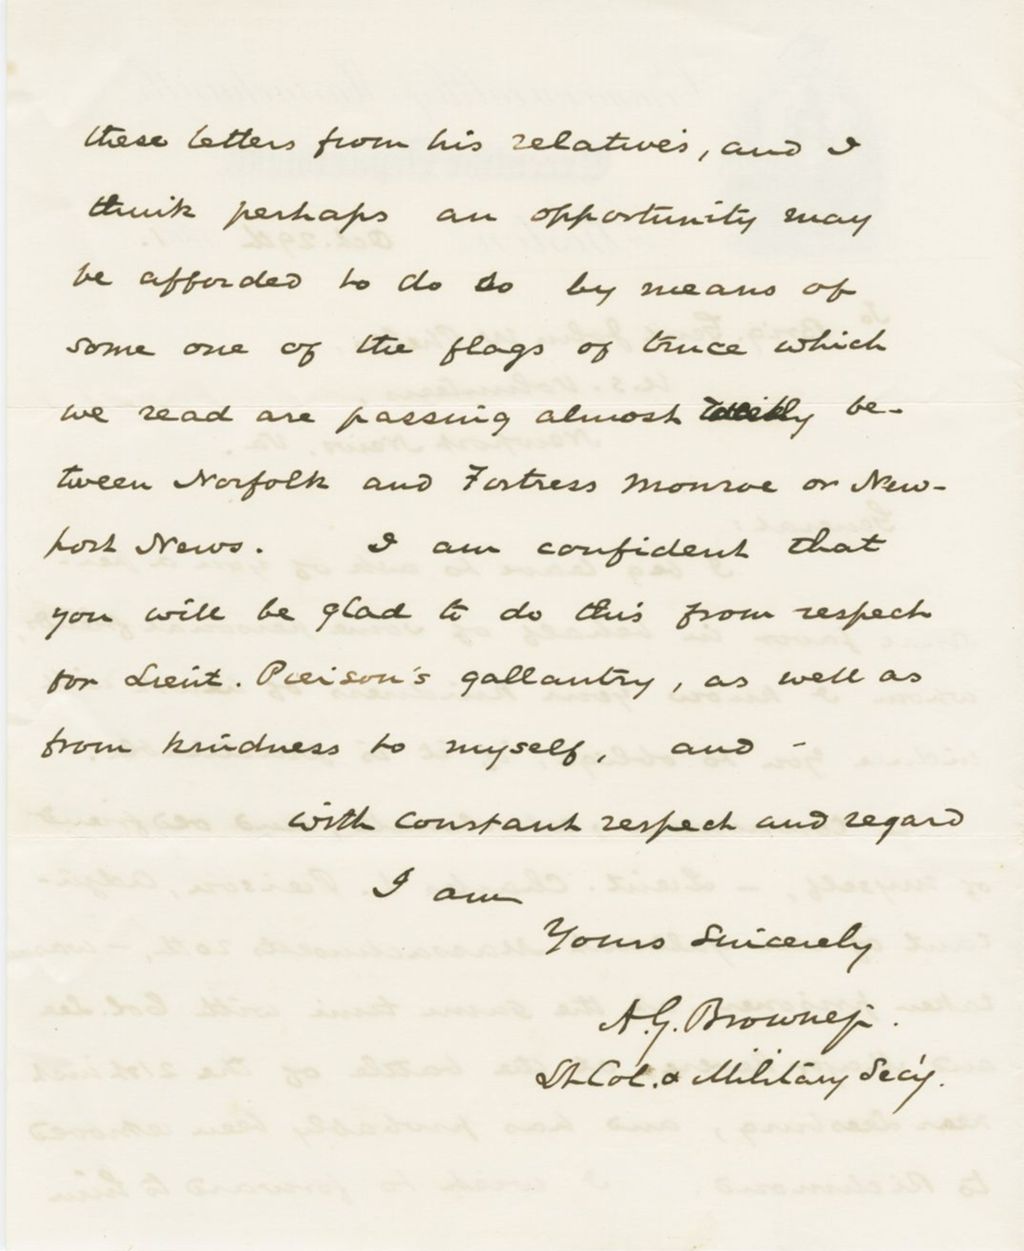 these letters from his relatives, and I
think perhaps an opportunity may
be afforded to do so by means of
some one of the flags of truce which
we read are passing almost daily be-
tween Norfolk and Fortress Monroe or New-
port News. I am confident that
you will be glad to do this from respect
for Lieut. Peirson's gallantry, as well as
from kindness to myself, and -
with constant respect and regard
I am
Yours Sincerely
A. G. Browne jr.
Lt Col. & Military Sec'y.